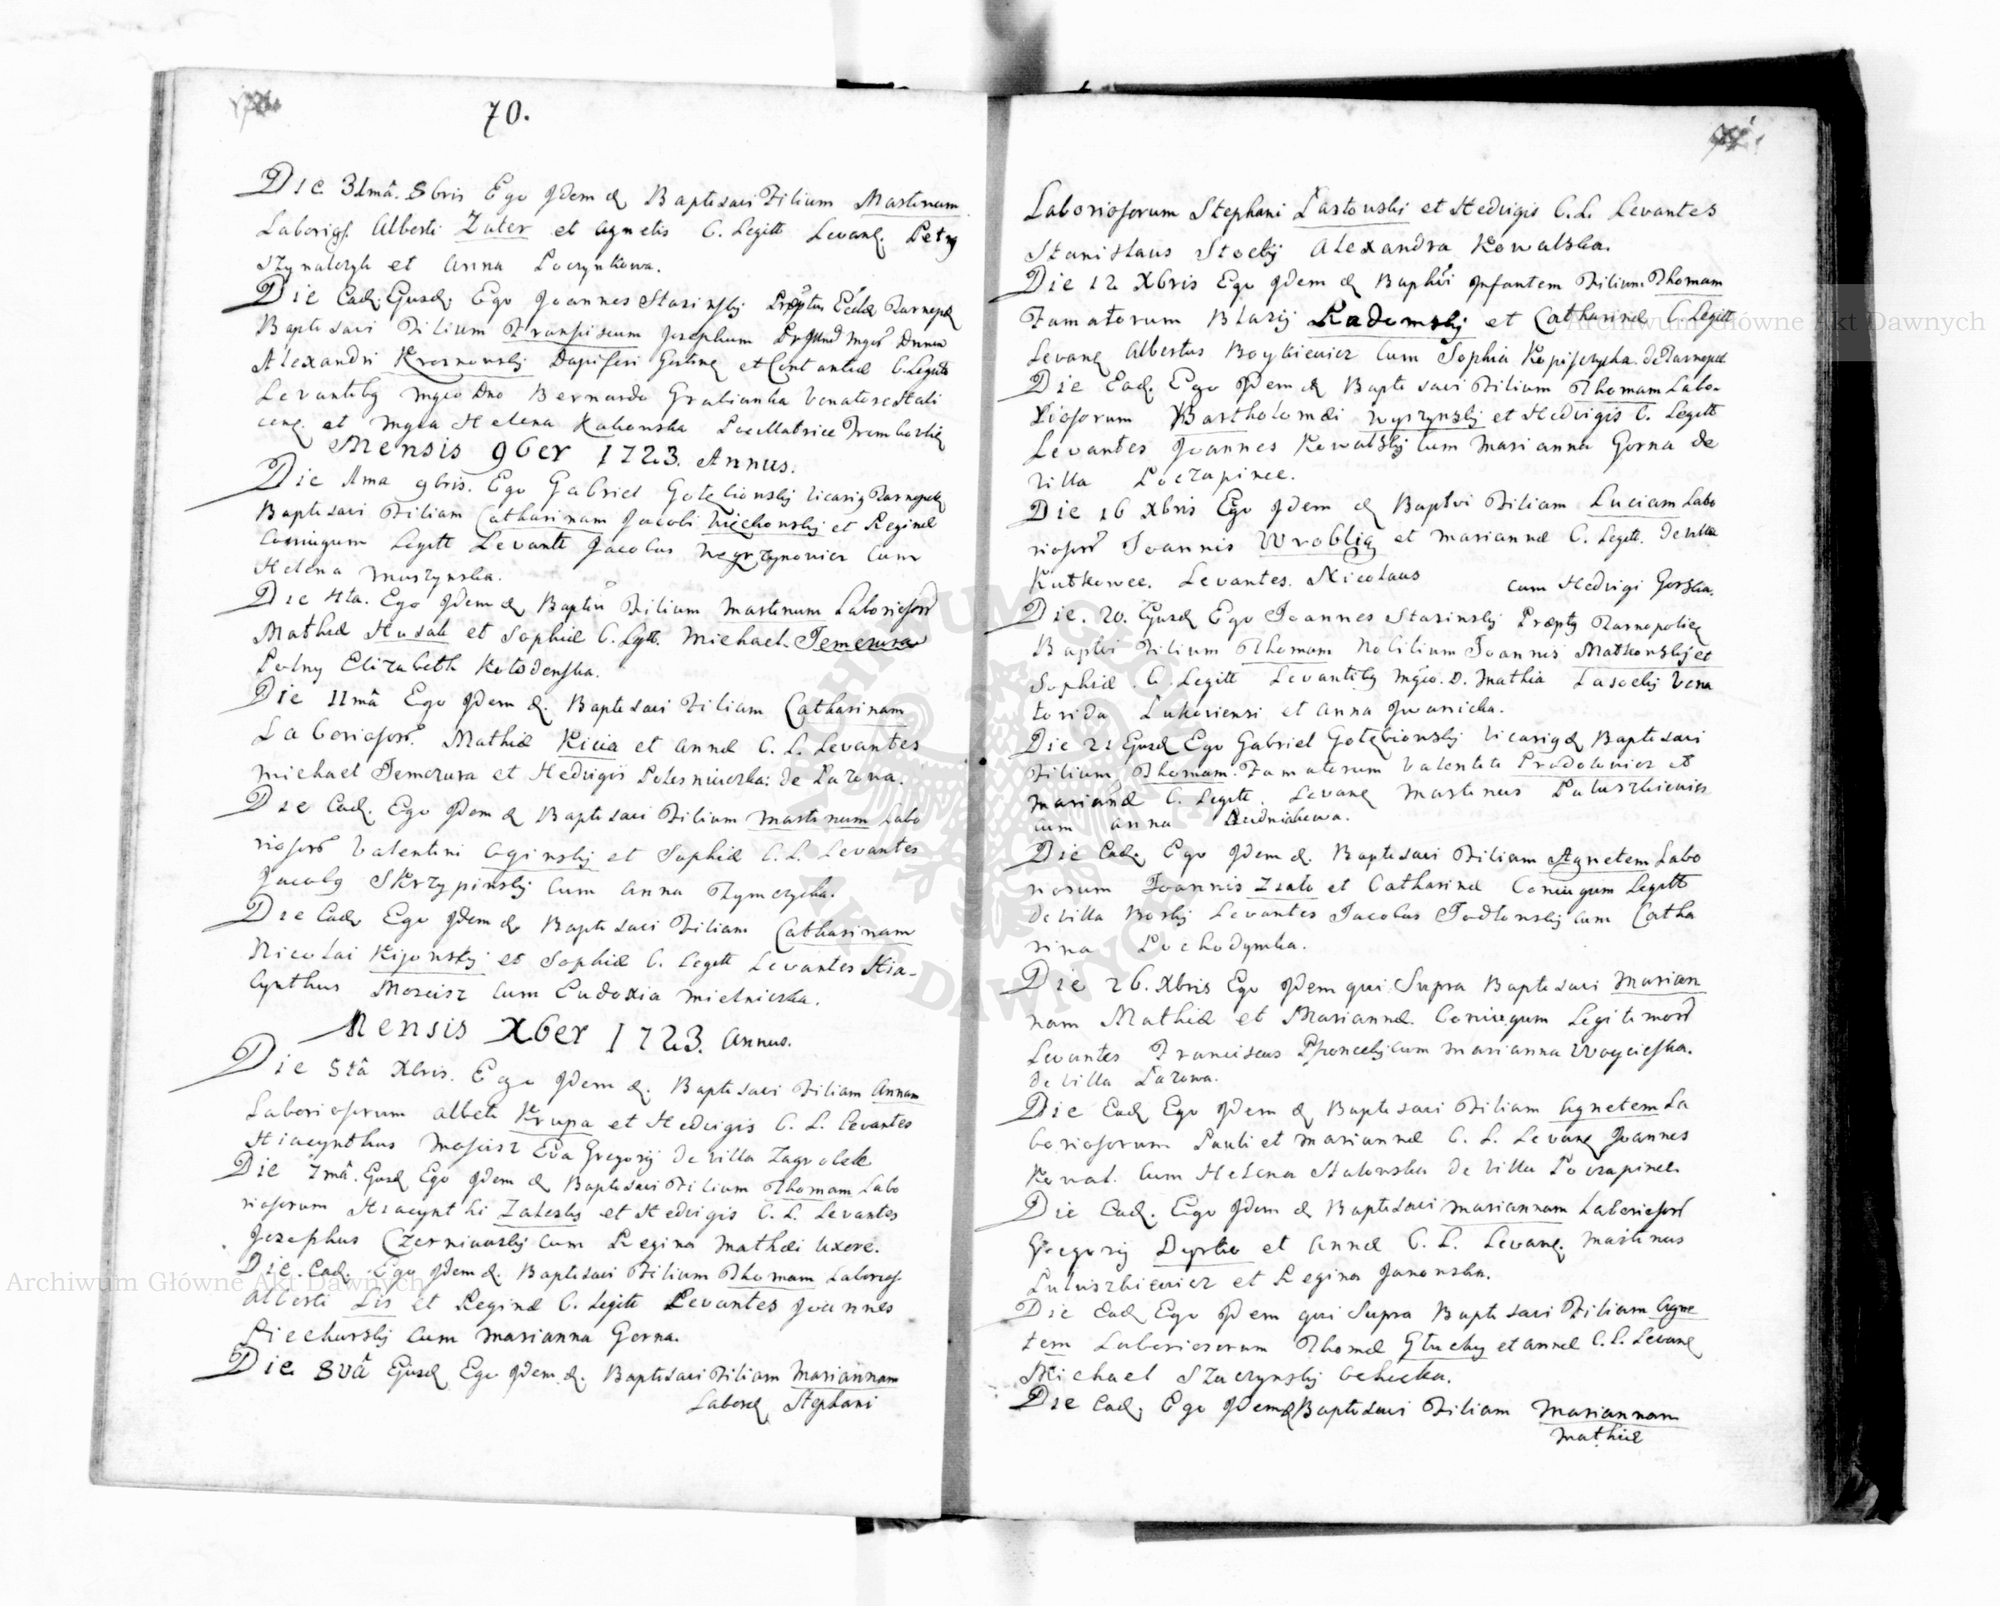 70.
Die 31mâ. 8bris Ego Idem &. Baptisavi Filium Martinum
Laborios. Alberti Zater et Agnetis C. Legitt Levant. Petrg
et Anna Poczynkowa.
Die Ead. Ejusd. Ego Joannes Starinsky Præptus Eccl. Tarnopol.
Baptisavi Filium Franciscum Josephum Mgcor. Dnum
Alexandri Krosnowsky Dapiferi et Constantiæ C. Legitt
Levantibg Mgco Dno Bernardo Grabianka Venatore Hali
cenq. et Mgca Helena Kakowska Trembovlie
Mensis 9ber 1723. Annus.
Die 9bris. Ego Gabriel Gołębionsky Vicarig Tarnopol.
Baptisavi Filiam Catharinam Jacobi et Reginæ
Coniugum Legitt Levantt Jacobus Węgrzynovicz cum
Helena Muszynska.
Die 4ta. Ego Idem &. Baptvi Filium Martinum Laboriosor
Mathiæ Husak et Sophiæ C. Lgtt. Michael Jemczura
Polny Elizabeth Kołodenska.
Die 11mâ Ego Idem &. Baptisavi Filiam Catharinam
Laboriosor. Mathiæ Kicia et Annæ C. L. Levantes
Michael Jemczura et Hedvigis Polesniuczka: de Łozova.
Die Ead. Ego Idem &. Baptisavi Filium Martinum Labo
riosor Valentini Oginsky et Sophiæ C. L. Levantes
Jacobg Skrzypinsky cum Anna Tymczycha.
Die Ead. Ego Idem &. Baptisavi Filiam Catharinam
Nicolai Kijonsky et Sophiæ C. Legitt Levantes Hia-
cynthus Moscisz cum Eudoxia Mielniczka.
Mensis Xber 1723. Annus.
Die 5tâ Xbris. Ego Idem &. Baptisavi Filiam Annam
Laboriosorum Alberti Krupa et Hedvigis C. L. Levantes
Hiacynthus Mosiisz Eva Gregorij de Villa Zagrobele
Die 7mâ. Ejusd Ego Idem &. Baptisavi Filium Thomam Labo
riosorum Hiacynthi Zalesky et Hedvigis C. L. Levantes
Josephus Czerniausky cum Regina Mathæi uxore.
Die. Ead. Ego Idem &. Baptisavi Filium Thomam Laborios.
Alberti Lis et Reginæ C. Legitt Levantes Joannes
Piechursky cum Marianna Gorna.
Die 8vâ Ejusd Ego Idem &. Baptisavi Filiam Mariannam
Stephani
Laboriosorum Stephani Łastousky et Hedvigis C. L. Levantes
Stanislaus Stocky Alexandra Kowalska.
Die 12 Xbris Ego Idem &. Baptvi Infantem Filium Thomam
Famatorum Blasij Radomsky et Catharinæ C. Legitt
Levanq Albertus Boykiewicz cum Sophia Kopisczycha. de Tarnopol
Die Ead. Ego Idem &. Baptisavi Filium Thomam Labo-
riosorum Bartholomæi Wyrzynsky et Hedvigis C. Legitt
Levantes Joannes Kowalsky cum Marianna Gorna de
Villa Poczapince.
Die 16 Xbris Ego Idem &. Baptvi Filiam Luciam Labo
riosor Joannis Wroblig et Mariannæ C. Legitt. de Villa
Kutkowce. Levantes. Nicolaus cum Hedvigi Gorska.
Die. 20. Ejusd Ego Joannes Starinsky Præptg Tarnopolieq
Baptvi Filium Thomam Nobilium Joannis Małkowsky et
Sophiæ. C. Legitt Levantibg Mgco. D. Mathia Lasocky Vena
torida Lukoviensi et Anna Iwanicka.
Die 21 Ejusd Ego Gabriel Gołębionsky Vicarig & Baptisavi
Filium Thomam. Famatorum Valentiti et
Mariannæ C. Legitt. Levanq Martinus Paluszkiewicz
cum Anna Rudniakowa.
Die Ead. Ego Idem &. Baptisavi Filiam Agnetem Labo
riorum Joannis et Catharinæ Coniugum Legitt
de Villa Borky Levantes Jacobus Jodłonsky cum Catha
rina Pochodymka.
Die 26. Xbris Ego Idem qui Supra Baptisavi Marian
nam Mathiæ et Mariannæ. Coniugum Legitimor
Levantes Franciscus cum Marianna Woycieska.
de Villa Łozowa.
Die Ead Ego Idem &. Baptisavi Filiam Agnetem La
boriosorum Pauli et Mariannæ C. L. Levanq Joannes
Koval. cum Helena Stalowska de Villa Poczapince.
Die Ead. Ego Idem &. Baptisavi Mariannam Laboriosor
Gregorij et Annæ C. L. Levanq. Martinus
Paluszkiewicz et Regina Janowska.
Die Ead Ego Idem qui Supra Baptisavi Filiam Agne
tem Laboriosorum Thomæ Głuchy et Annæ C. L. Levanq
Michael Szaczynsky
Die Ead; Ego Idem & Baptisavi Filiam Mariannam
Mathiæ
Archiwum Główne Akt Dawnych
Archiwum Główne Akt Dawnych